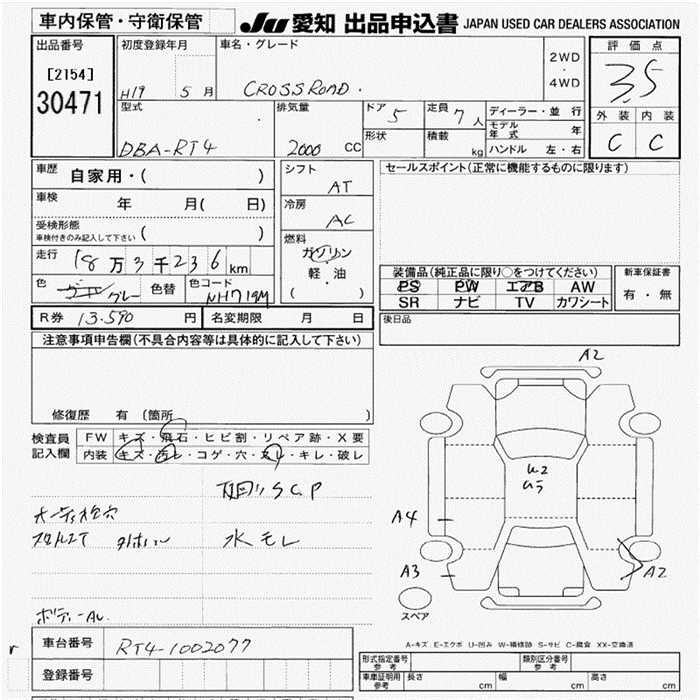 車内保管・守衛保管
JU 愛知 出品申込書 JAPAN USED CAR DEALERS ASSOCIATION
出品番号
[2154]
30471
初度登録年月
H19 5 月
車名・グレード
CROSSROAD
2WD
・
4WD
評価点
3.5
外装 内装
C C
型式
DBA-RT4
排気量
2000 CC
ドア 5
定員 7 人
形状
積載 kg
ディーラー・並行
モデル年式 年
ハンドル 左・右
車歴 自家用・( )
車検 年 月( 日)
受検形態
車検付きのみ記入して下さい ( )
走行 18 万 3 千 236 km
色 グレー 色替 色コード NH719M
シフト
AT
冷房
AC
燃料
ガソリン
軽・油
( )
セールスポイント(正常に機能するものに限ります)
装備品(純正品に限り○をつけてください)
PS PW エアB AW
SR ナビ TV カワシート
新車保証書
有・無
R券 13.590 円 名変期限 月 日
後日品
注意事項申告欄(不具合内容等は具体的に記入して下さい)
修復歴 有 (箇所 )
検査員記入欄
FW キズ・飛石・ヒビ割・リペア跡・X要
内装 キズ・汚レ・コゲ・穴・スレ・キレ・破レ
下回りSC.P
水モレ
ボディーAL
A2
A4
A3
A2
スペア
A-キズ E-エクボ U-凹み W-補修跡 S-サビ C-腐食 XX-交換済
r
車台番号 RT4-1002077
登録番号
形式指定番号 参考 類別区分番号 参考
車庫証明用 参考 長さ cm 幅 cm 高さ cm